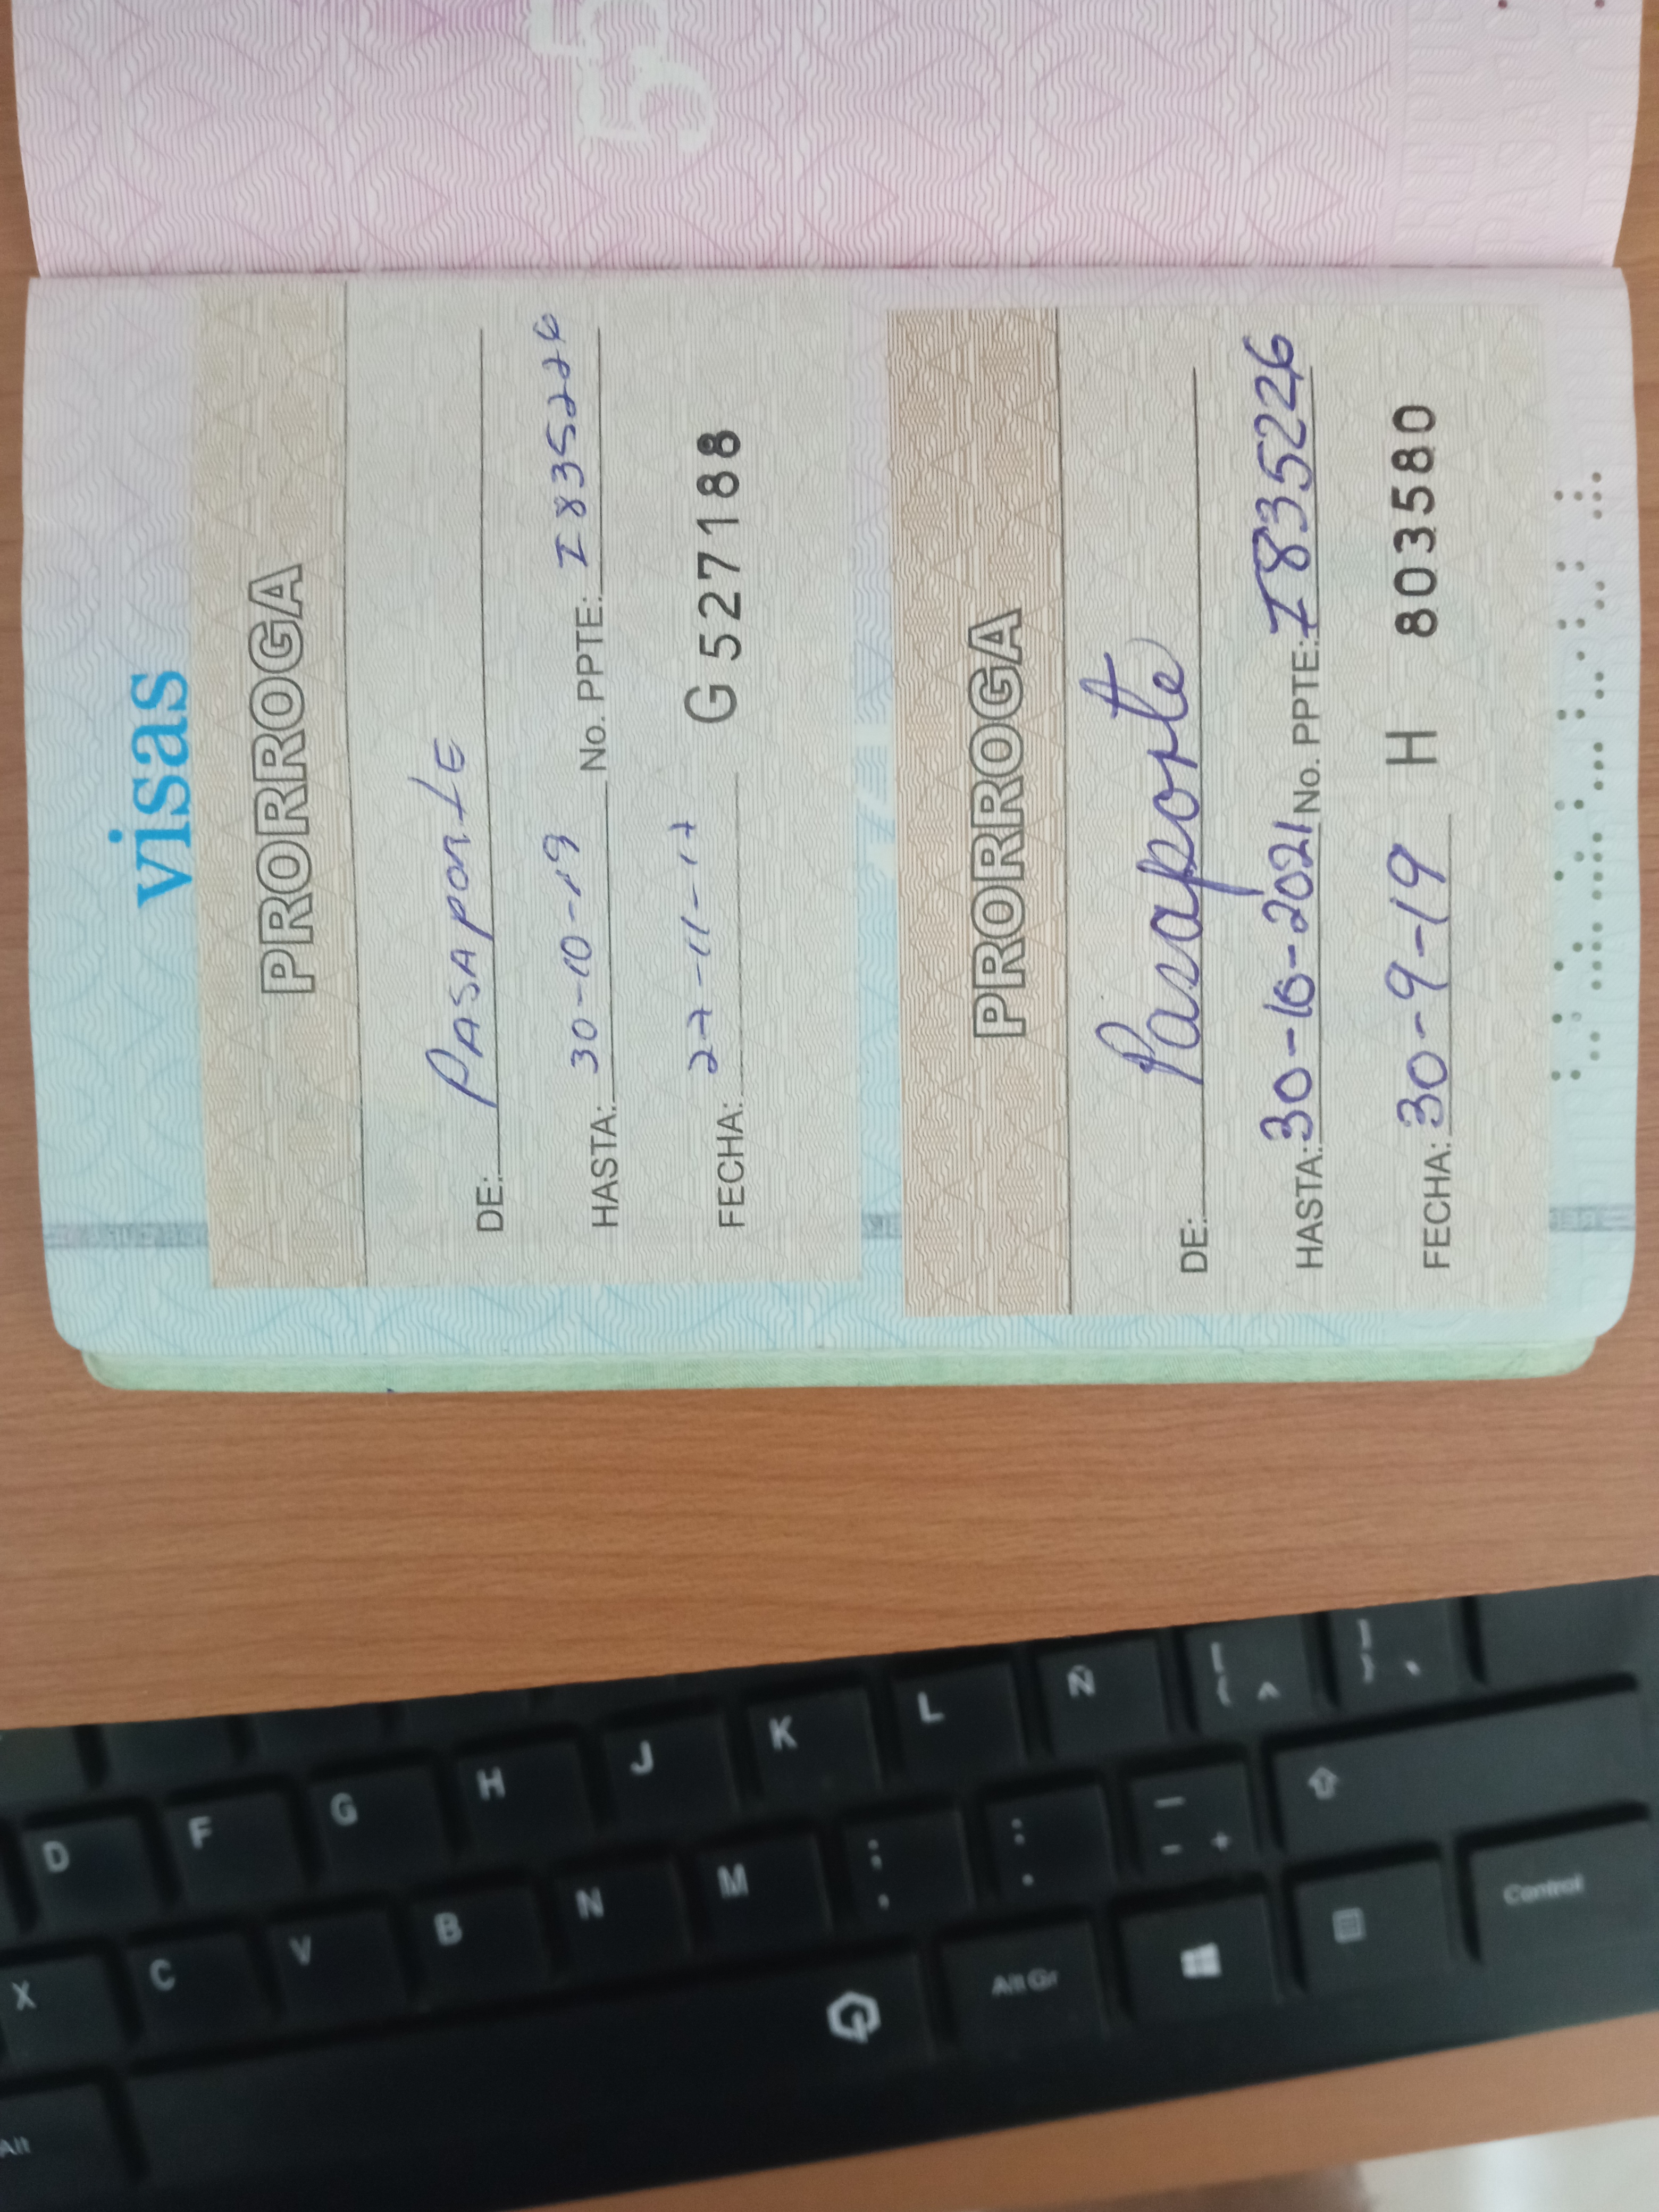 visas
PRORROGA
DE: PASAPORTE
HASTA: 30-10-19 No. PPTE: I835226
FECHA: 27-11-17 G 527188
PRORROGA
DE: Pasaporte
HASTA: 30-10-2021 No. PPTE: I835226
FECHA: 30-9-19 H 803580
5
D F G H J K L Ñ [ { ^ ] }
X C V B N M ; , : . _ - +
Alt Alt Gr Control